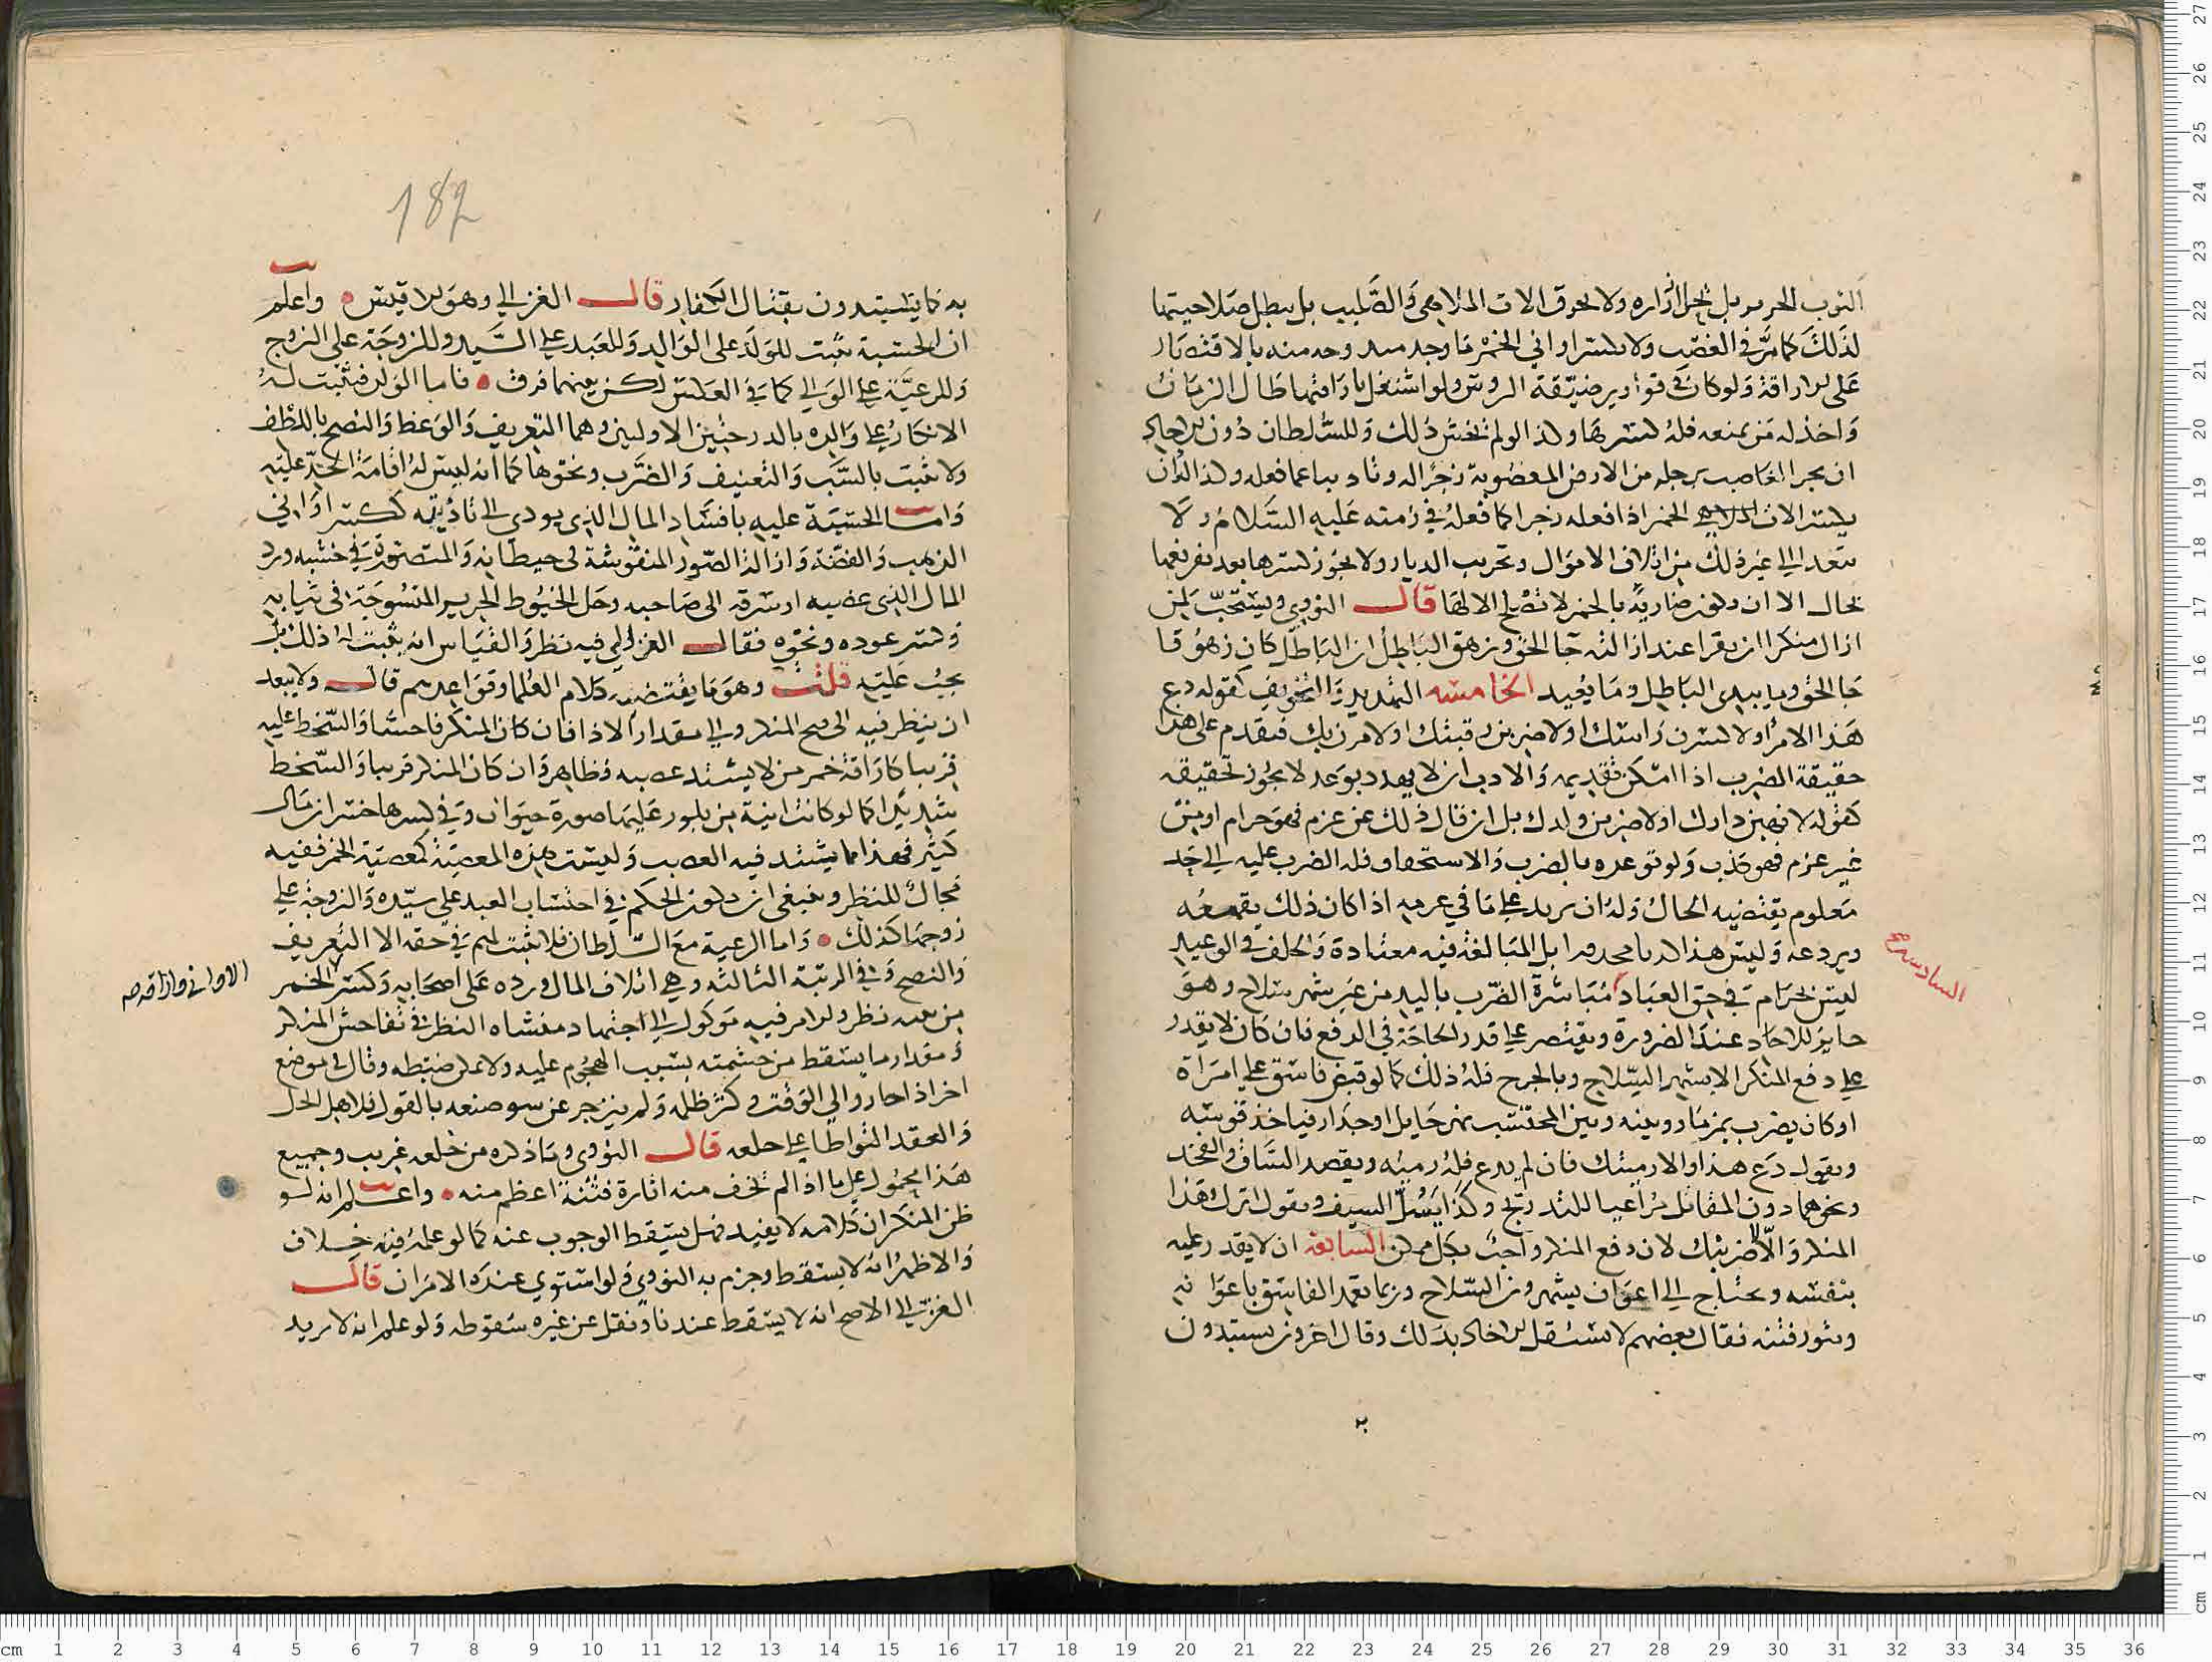 الثوب الحرير بل يحل ازراره ولا يحرق الات الملاهي والصليب بل يبطل صلاحيتها
لذلك كما مر في الغصب ولا يكسر اواني الخمر ما وجد منه بالاقتصار
على الاراقة ولو كان في قوارير ضيقة الروس ولو اشتغل باراقتها طال الزمان
واخذله من يمنعه فله كسرها وكذا لو لم يخش ذلك وللسلطان دون الاحاد
ان يجر الغاصب برجله من الارض المغصوبة زجرا له وتاديبا عما فعله وكذا له ان
يكسر الخمر اذا فعله زجرا كما فعله في زمنه عليه السلام ولا
يتعد الى غير ذلك من اتلاف الاموال وتخريب الديار ولا يجوز كسرها بعد تفريغها
بحال الا ان تكون ضارية بالخمر لا تصلح الا لها قال النووي ويستحب لمن
ازال منكرا ان يقرا عند ازالته جا الحق وزهق الباطل ان الباطل كان زهوقا
جا الحق وما يبدي الباطل وما يعيد الخامسه التهديد والتخويف كقوله دع
هذا الامر اولا كسرن راسك اولا ضربن رقبتك اولا مرن بك فيقدم على هذا
حقيقة الضرب اذا امكن تقديمه والادب ان لا يهدد بوعد لا يجوز تحقيقه
كقوله لا نهبن دارك اولا ضربن ولدك بل ان قال ذلك عن عزم فهو حرام او من
غير عزم فهو كذب ولو توعده بالضرب والاستخفاف فله الضرب عليه الى حد
معلوم يقتضيه الحال وله ان يزيد على ما في عزمه اذا كان ذلك يقمعه
ويردعه وليس هذا بل المبالغة فيه معتادة والخلف في الوعيد
ليس بحرام في حق العباد مباشرة الضرب باليد من غير شهر سلاح وهو
السادسه صح
جايز للاحاد عند الضرورة ويقتصر على قدر الحاجة في الدفع فان كان لا يقدر
على دفع المنكر الا بشهر السلاح وبالجرح فله ذلك كما لو قبض فاسق على امراة
او كان يضرب بمزمار وبينه وبين المحتسب نهر حايل او جدار فياخذ قوسه
ويقول دع هذا والا رميتك فان لم يدع فله رميه ويقصد الساق والفخذ
ونحوهما دون المقاتل مراعيا للتدريج وكذا يسل السيف ويقول اترك هذا
المنكر والا ضربتك لان دفع المنكر واجب بكل ممكن السابعه ان لا يقدر عليه
بنفسه ويحتاج الى اعوان يشهرون السلاح وربما يمد الفاسق باعوانه
ويثور فتنه فقال بعضهم لا يستقل الاحاد بذلك وقال اخرون يستبدون
182
به كما يستبدون بقتال الكفار قال الغزالي وهو الاقيس واعلم
ان الحسبة تثبت للولد على الوالد وللعبد على السيد وللزوجة على الزوج
وللرعية على الوالي كما في العكس لكن بينهما فرق فاما الولد فيثبت له
الانكار على والده بالدرجتين الاوليين وهما التعريف والوعظ والنصح باللطف
ولا يثبت بالسب والتعنيف والضرب ونحوها كما انه ليس له اقامة الحد عليه
واما الحسبة عليه بافساد المال الذي يودي الى تاذيته ككسر اواني
الذهب والفضة وازالة الصور المنقوشة في حيطانه والمتصورة في خشبه ورد
المال الذي غصبه او سرقه الى صاحبه وحل الخيوط الحرير المنسوجة في ثيابه
وكسر عوده ونحوه فقال الغزالي فيه نظر والقياس انه يثبت له ذلك بل
يجب عليه قلت وهو ما يقتضيه كلام العلما وقواعدهم قال ولا يبعد
ان ينظر فيه الى قبح المنكر والى مقدار الاذا فان كان المنكر فاحشا والسخط عليه
قريبا كاراقة خمر من لا يشتد غضبه فظاهر وان كان المنكر قريبا والسخط
شديدا كما لو كانت انية من بلور عليها صورة حيوان وفي كسرها خسران مال
كثير فهذا مما يشتد فيه الغضب وليست هذه المعصية كمعصية الخمر ففيه
مجال للنظر وينبغي ان يكون الحكم في احتساب العبد على سيده والزوجة على
زوجها كذلك واما الرعية مع السلطان فلا يثبت لهم في حقه الا التعريف
والنصح وفي الرتبة الثالثه وهي اتلاف المال ورده على اصحابه وكسر الخمر
الاواني واراقه صح
من بعد نظر والامر فيه موكول الى اجتهاد منشاه النظر في تفاحش المنكر
ومقدار ما يسقط من حشمته بسبب الهجوم عليه ولا يمكن ضبطه وقال في موضع
اخر اذا جار والي الوقت وكثر ظلمه ولم ينزجر عن سو صنعه بالقول فلاهل الحل
والعقد التواطا على خلعه قال النووي وما ذكره من خلعه غريب وجميع
هذا محمول على ما اذا لم يخف منه اثارة فتنة اعظم منه واعلم انه لو
ظن المنكر ان كلامه لا يفيد فهل يسقط الوجوب عنه كما لو علمه فيه خلاف
والاظهر انه لا يسقط وجزم به النووي ولو استوي عنده الامران قال
الغزالي الاصح انه لا يسقط عندنا ونقل عن غيره سقوطه ولو علم انه لا يريد